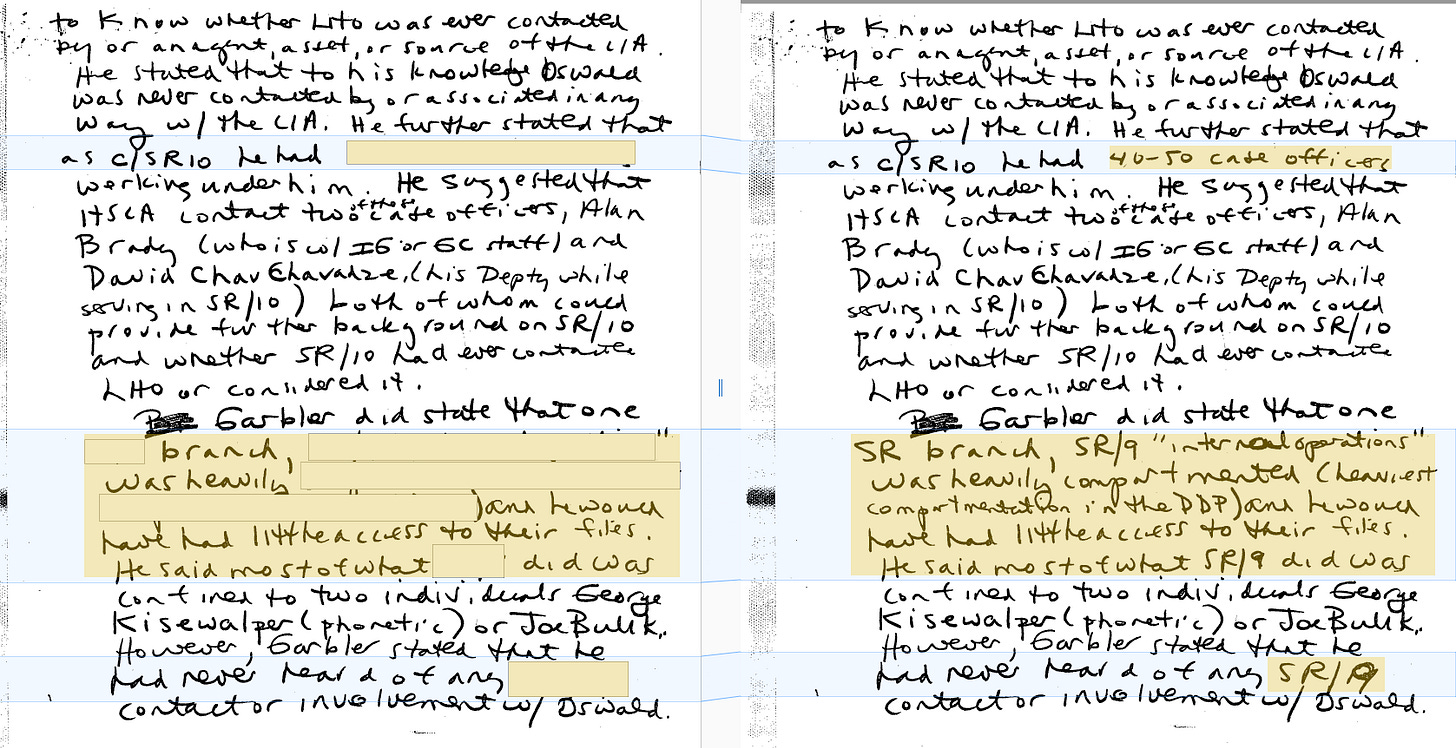 to Know whether LHO was ever contacted
by or an agent, asset, or source of the CIA.
He stated that to his knowledge Oswald
was never contacted by or associated in any
way w/ the CIA. He further stated that
as C/SR10 he had
working under him. He suggested that
HSCA contact two of those case officers, Alan
Brady (who is w/ IG or GC staff) and
David Chav Chavadze, (his Depty while
serving in SR/10) both of whom could
provide further background on SR/10
and whether SR/10 had ever contacted
LHO or considered it.
Garbler did state that one
branch, "
was heavily
) and he would
have had little access to their files.
He said most of what did was
confined to two individuals George
Kisewalper (phonetic) or Joe Bulik.
However, Garbler stated that he
had never heard of any
contact or involvement w/ Oswald.
to Know whether LHO was ever contacted
by or an agent, asset, or source of the CIA.
He stated that to his knowledge Oswald
was never contacted by or associated in any
way w/ the CIA. He further stated that
as C/SR10 he had 40-50 case officers
working under him. He suggested that
HSCA contact two of those case officers, Alan
Brady (who is w/ IG or GC staff) and
David Chav Chavadze, (his Depty while
serving in SR/10) both of whom could
provide further background on SR/10
and whether SR/10 had ever contacted
LHO or considered it.
Garbler did state that one
SR branch, SR/9 "internal operations"
was heavily compartmented (heaviest
compartmentation in the DDP) and he would
have had little access to their files.
He said most of what SR/9 did was
confined to two individuals George
Kisewalper (phonetic) or Joe Bulik.
However, Garbler stated that he
had never heard of any SR/9
contact or involvement w/ Oswald.